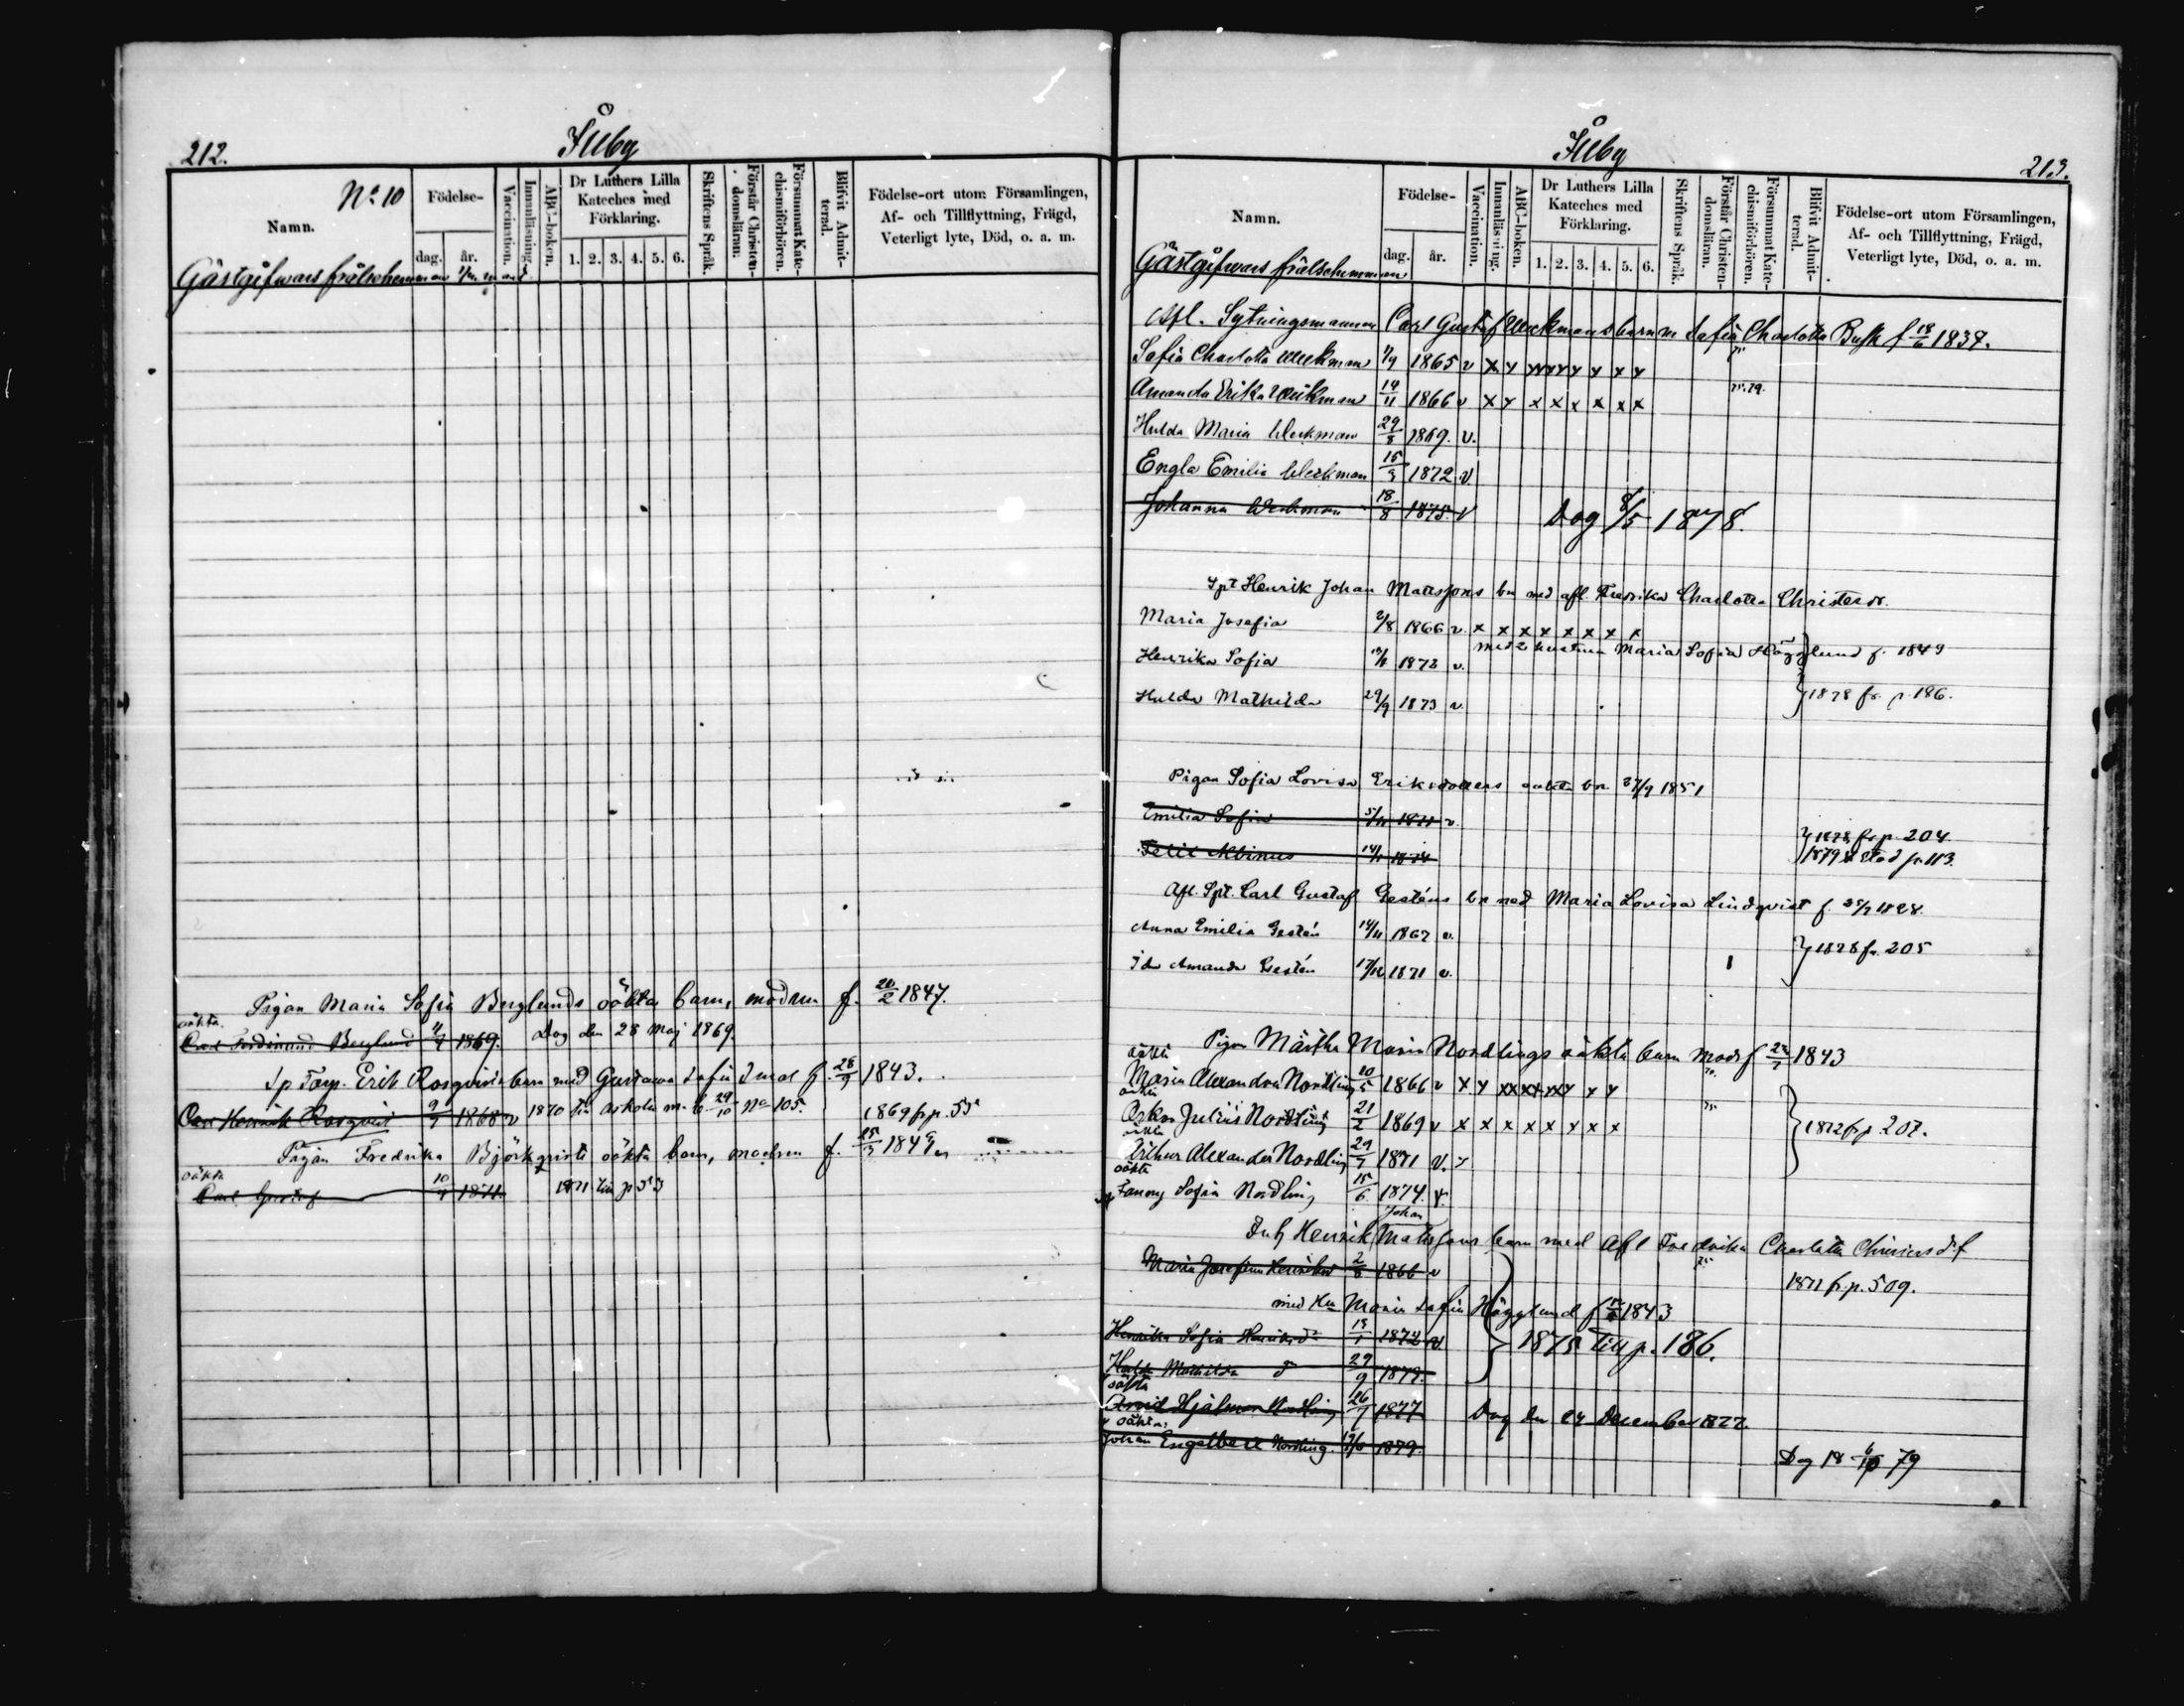 212.
Åby
No 10
Namn.
Födelse-
dag.
år.
Vaccination.
Innanläsning.
ABC-boken.
Dr Luthers Lilla
Kateches med
Förklaring.
1. 2. 3. 4. 5. 6.
Skriftens Språk.
Förstår Christen-
domsläran.
Försummat Kate-
chismiförhören.
Blifvit Admit-
terad.
Födelse-ort utom Församlingen,
Af- och Tillflyttning, Frägd,
Veterligt lyte, Död, o. a. m.
Gästgifwars frälsehemman
Pigan Maria Sofia Berglunds oäkta barn, modren f. 1847.
oäkta
Carl Ferdinand Berglund 11/4 1869. Dog den 28 Maj 1869.
Sp Torp. Erik Rosqvists barn med Gustava Sofia f. 28/7 1843.
Henrik Rosqvist 9/7 1868 v 1870 29/10 No 105. 1869 fr p. 55
Pigan Fredrika Björkqvists oäkta barn, modren f. 25/3 1849
oäkta
Carl Gustaf 10/4 1871 1871 till p 53
213.
Åby
Namn.
Födelse-
dag.
år.
Vaccination.
Innanläsning.
ABC-boken.
Dr Luthers Lilla
Kateches med
Förklaring.
1. 2. 3. 4. 5. 6.
Skriftens Språk.
Förstår Christen-
domsläran.
Försummat Kate-
chismiförhören.
Blifvit Admit-
terad.
Födelse-ort utom Församlingen,
Af- och Tillflyttning, Frägd,
Veterligt lyte, Död, o. a. m.
Gästgifwars frälsehemman
Afl. Sytningsmannen Carl Gustaf Weckmans barn m Sofia Charlotta f 18/6 1837.
Sofia Charlotta Weckman 1865 v x x x x x x x x x
Amanda Erika Weckman 14/11 1866 v x x x x x x x x
Hulda Maria Weckman 29/8 1869. v.
Engla Emilia Weckman 15/3 1872 v
Johanna Weckman 18/8 1875 v Dog 8/5 1878.
Spt Henrik Johan Matssons bn med afl. Fredrika Charlotta Christersdr.
Maria Josefia 2/8 1866 v. x x x x x x x x
med 2 hustrun Maria Sofia Hägglund f. 1849
Henrika Sofia 1872 v.
Hulda Mathilda 29/9 1873 v. 1878 fr. p. 186.
Pigan Sofia Lovisa Eriksdotters oäkta bn 27/9 1851
Emilia Sofia 1871 v.
Felix Albinus 14/1 1874
1878 fr p. 204
1879 p. 113.
Afl. Spt. Carl Gustaf Gesténs bn med Maria Lovisa Lindqvist f. 1828.
Anna Emilia Gestén 14/11 1867 v.
Ida Amanda Gestén 17/12 1871 v.
1878 fr. 205
Pigan Märtha Maria Nordlings oäkta barn modr f 1843
oäkta
Maria Alexandra Nordling 10/5 1866 v x x x x x x x x x
oäkta
Oskar Julius Nordling 21/2 1869 v x x x x x x x x
oäkta
Arthur Alexander Nordling 29/7 1871 v.
1872 fr p 207.
oäkta
Fanny Sofia Nordling 15/6 1874. v.
Johan
Inh Henrik Matssons barn med Afl Fredrika Charlotta Christersdr f
Maria Josefina Henriksdr 2/8 1866 v
1872 fr p. 509.
med Hu Maria Sofia Hägglund f 1843
Henrika Sofia Henriksdr 1872 v
1875 till p. 186.
Hulda Mathilda d 29/9 1873.
oäkta
Arvid Hjalmar Nordling 26/7 1877 Dog den 24 December 1877.
oäkta
Johan Engelbert Nordling. 1879.
Dog 18 79